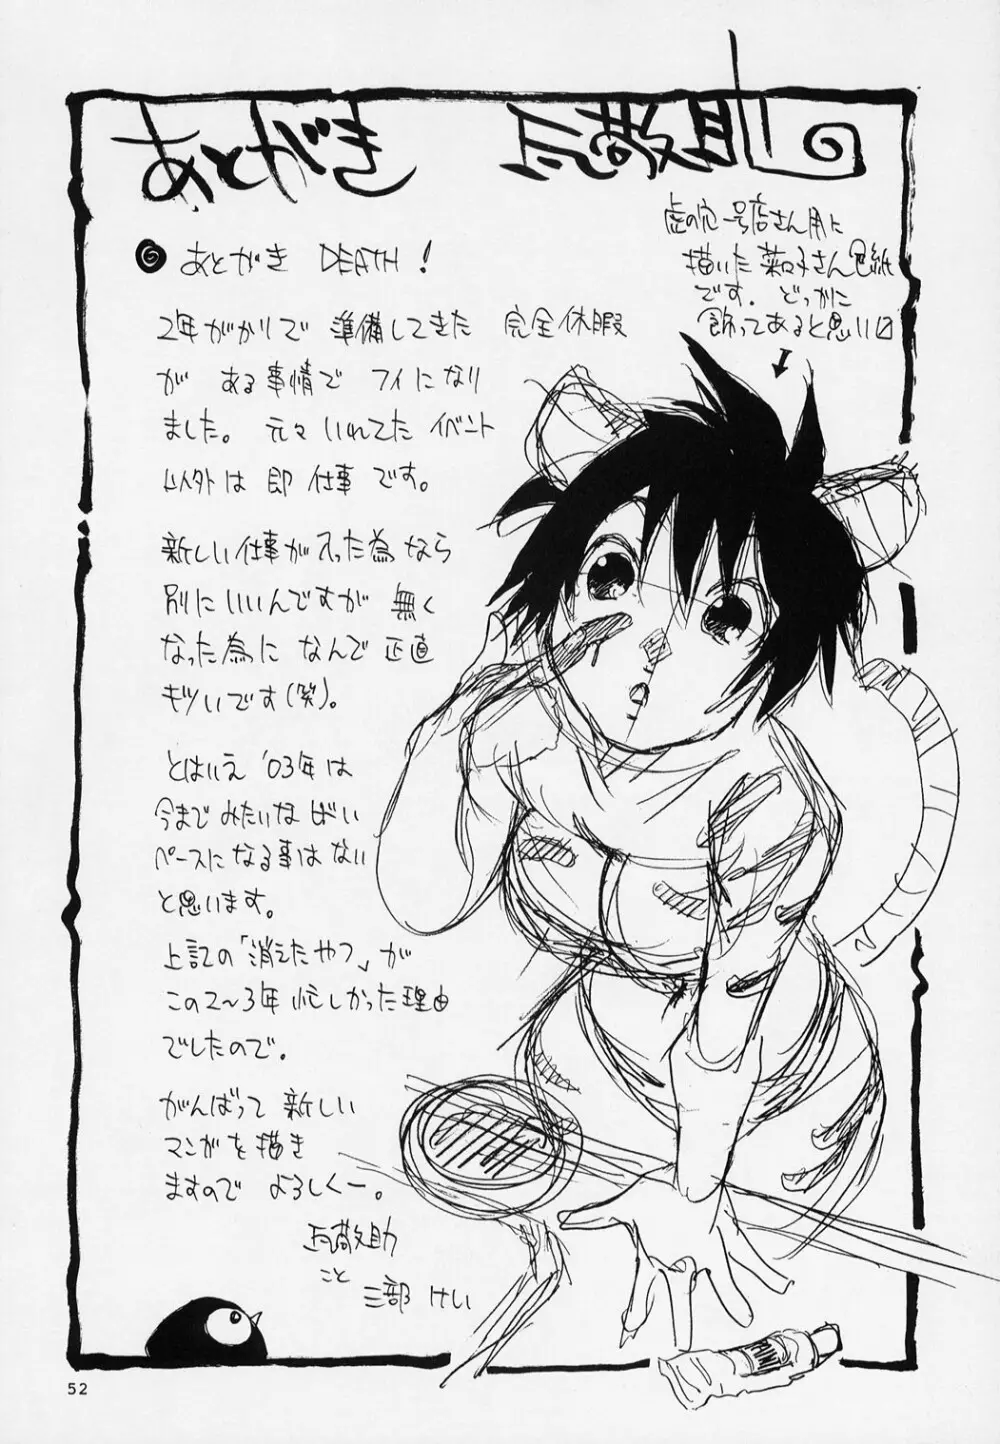 あとがき 瓦敬助
虎の穴一号店さん用に
描いた菜々子さん色紙
です。どっかに
飾ってあると思い〼
↓
あとがき DEATH!
2年がかりで 準備してきた 完全休暇
が ある事情で フイになり
ました。元々 いれてた イベント
以外は 即 仕事 です。
新しい仕事が入った為なら
別にいいんですが 無く
なった為に なんで 正直
キツいです(笑)。
とはいえ '03年は
今まで みたいな ばい
ペースになる事はない
と思います。
上記の「消えたやつ」が
この2〜3年 忙しかった理由
でしたので。
がんばって 新しい
マンガを描き
ますので よろしくー。
瓦敬助
こと
三部 けい
52